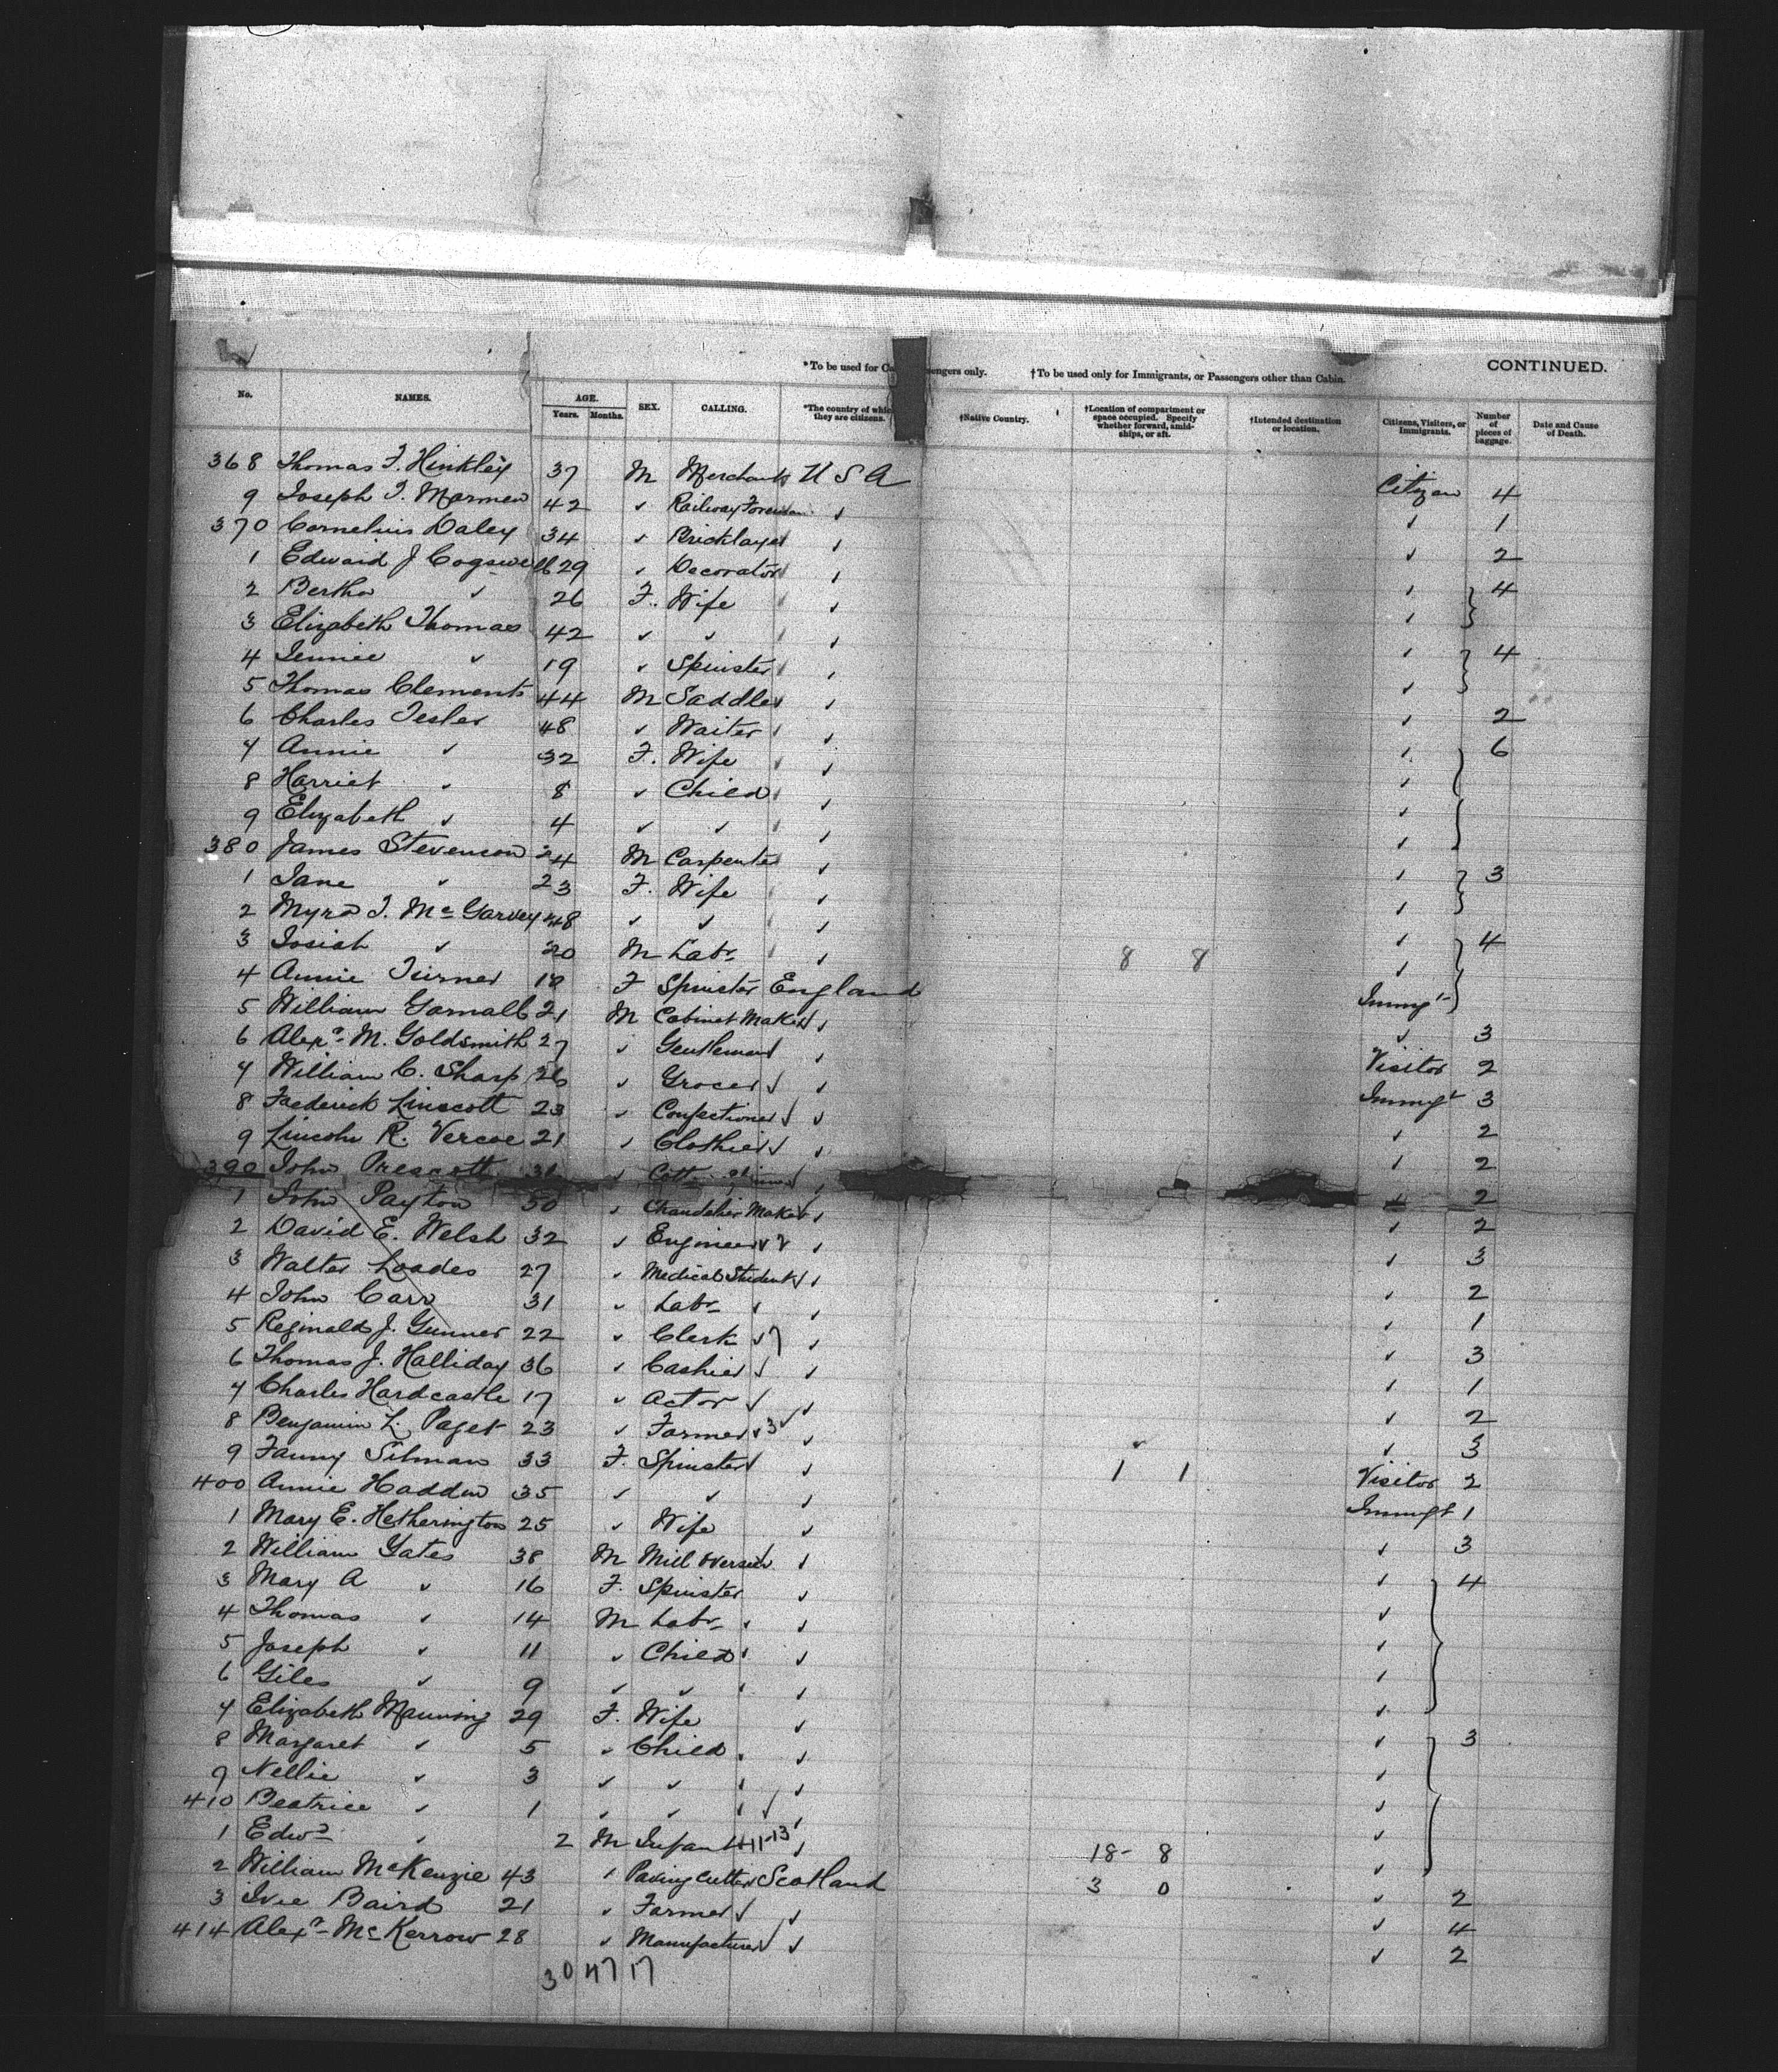 CONTINUED.
*To be used for Ca sengers only. †To be used only for Immigrants, or Passengers other than Cabin.
No. NAMES. AGE. Years. Months. SEX. CALLING. *The country of whic they are citizens. †Native Country. †Location of compartment or space occupied. Specify whether forward, amidships, or aft. †Intended destination or location. Citizens, Visitors, or Immigrants. Number of pieces of baggage. Date and Cause of Death.
368 Thomas F. Hinkley 37 M Merchant U S A Citizen 4
9 Joseph T. Marmen 42 ✓ Railway Foreman ✓ ✓ 1
370 Cornelius Daley 34 ✓ Bricklayer ✓ ✓ 2
1 Edward J Cogswell 29 ✓ Decorator ✓ ✓ 4
2 Bertha ✓ 26 F. Wife ✓ ✓
3 Elizabeth Thomas 42 ✓ ✓ ✓ ✓ 4
4 Jennie ✓ 19 ✓ Spinster ✓ ✓
5 Thomas Clements 44 M Saddler ✓ ✓ 2
6 Charles Tesler 48 ✓ Waiter ✓ ✓ 6
7 Annie ✓ 32 F. Wife ✓ ✓
8 Harriet ✓ 8 ✓ Child ✓ ✓
9 Elizabeth ✓ 4 ✓ ✓ ✓ ✓
380 James Stevenson 24 M Carpenter ✓ ✓ 3
1 Jane ✓ 23 F. Wife ✓ ✓
2 Myra T. McGarvey 48 ✓ ✓ ✓ ✓ 4
3 Josiah ✓ 20 M Labr ✓ 8 8 ✓
4 Annie Turner 18 F Spinster England Immgt
5 William Gornall 21 M Cabinet Maker ✓ ✓ 3
6 Alexr M. Goldsmith 27 ✓ Gentleman ✓ Visitor 2
7 William C. Sharp 26 ✓ Grocer ✓ Immgt 3
8 Frederick Linscott 23 ✓ Confectioner ✓ ✓ 2
9 Lincoln R. Vercoe 21 ✓ Clothier ✓ ✓ 2
390 John Prescott ✓ ✓ ✓ 2
1 John Payton 50 ✓ Chandelier Maker ✓ ✓ 2
2 David E. Welsh 32 ✓ Engineer ✓ ✓ 3
3 Walter Loades 27 ✓ Medical Student ✓ ✓ 2
4 John Carr 31 ✓ Labr ✓ ✓ 1
5 Reginald J. Gunner 22 ✓ Clerk ✓ ✓ 3
6 Thomas J. Halliday 36 ✓ Cashier ✓ ✓ 1
7 Charles Hardcastle 17 ✓ Actor ✓ ✓ 2
8 Benjamin L. Paget 23 ✓ Farmer 3 ✓ ✓ 3
9 Fanny Silman 33 F. Spinster ✓ 1 1 Visitor 2
400 Annie Haddow 35 ✓ ✓ ✓ Immgt 1
1 Mary E. Hetherington 25 ✓ Wife ✓ ✓ 3
2 William Yates 38 M Mill Overseer ✓ ✓ 4
3 Mary A ✓ 16 F. Spinster ✓ ✓
4 Thomas ✓ 14 M Labr ✓ ✓
5 Joseph ✓ 11 ✓ Child ✓ ✓
6 Giles ✓ 9 ✓ ✓ ✓ ✓
7 Elizabeth Manning 29 F. Wife ✓ ✓ 3
8 Margaret ✓ 5 ✓ Child ✓ ✓
9 Nellie ✓ 3 ✓ ✓ ✓ ✓
410 Beatrice ✓ 1 ✓ ✓ ✓ ✓
1 Edwd ✓ 2 M Infant 11-13 ✓ 18- 8 ✓
2 William McKenzie 43 ✓ Paving Cutter Scotland 3 0 ✓ 2
3 Ivie Baird 21 ✓ Farmer ✓ ✓ 4
414 Alexr McKerrow 28 ✓ Manufacturer ✓ ✓ 2
30 47 17